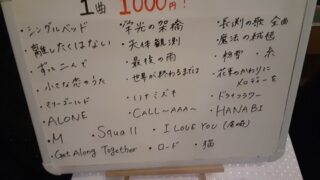 1曲 1000円!
・シングルベッド
・離したくはない
・ずっと二人で
・小さな恋のうた
・マリーゴールド
・ALONE
・M
・Get Along Together
・栄光の架橋
・天体観測
・最後の雨
・世界が終るまでは
・ハナミズキ
・CALL ~AAA~
・Squall
・I LOVE YOU(尾崎)
・ロード
・猫
・長渕の歌 全曲
・魔法の絨毯
・粉雪 ・糸
・花束のかわりにメロディーを
・ドライフラワー
・HANABI